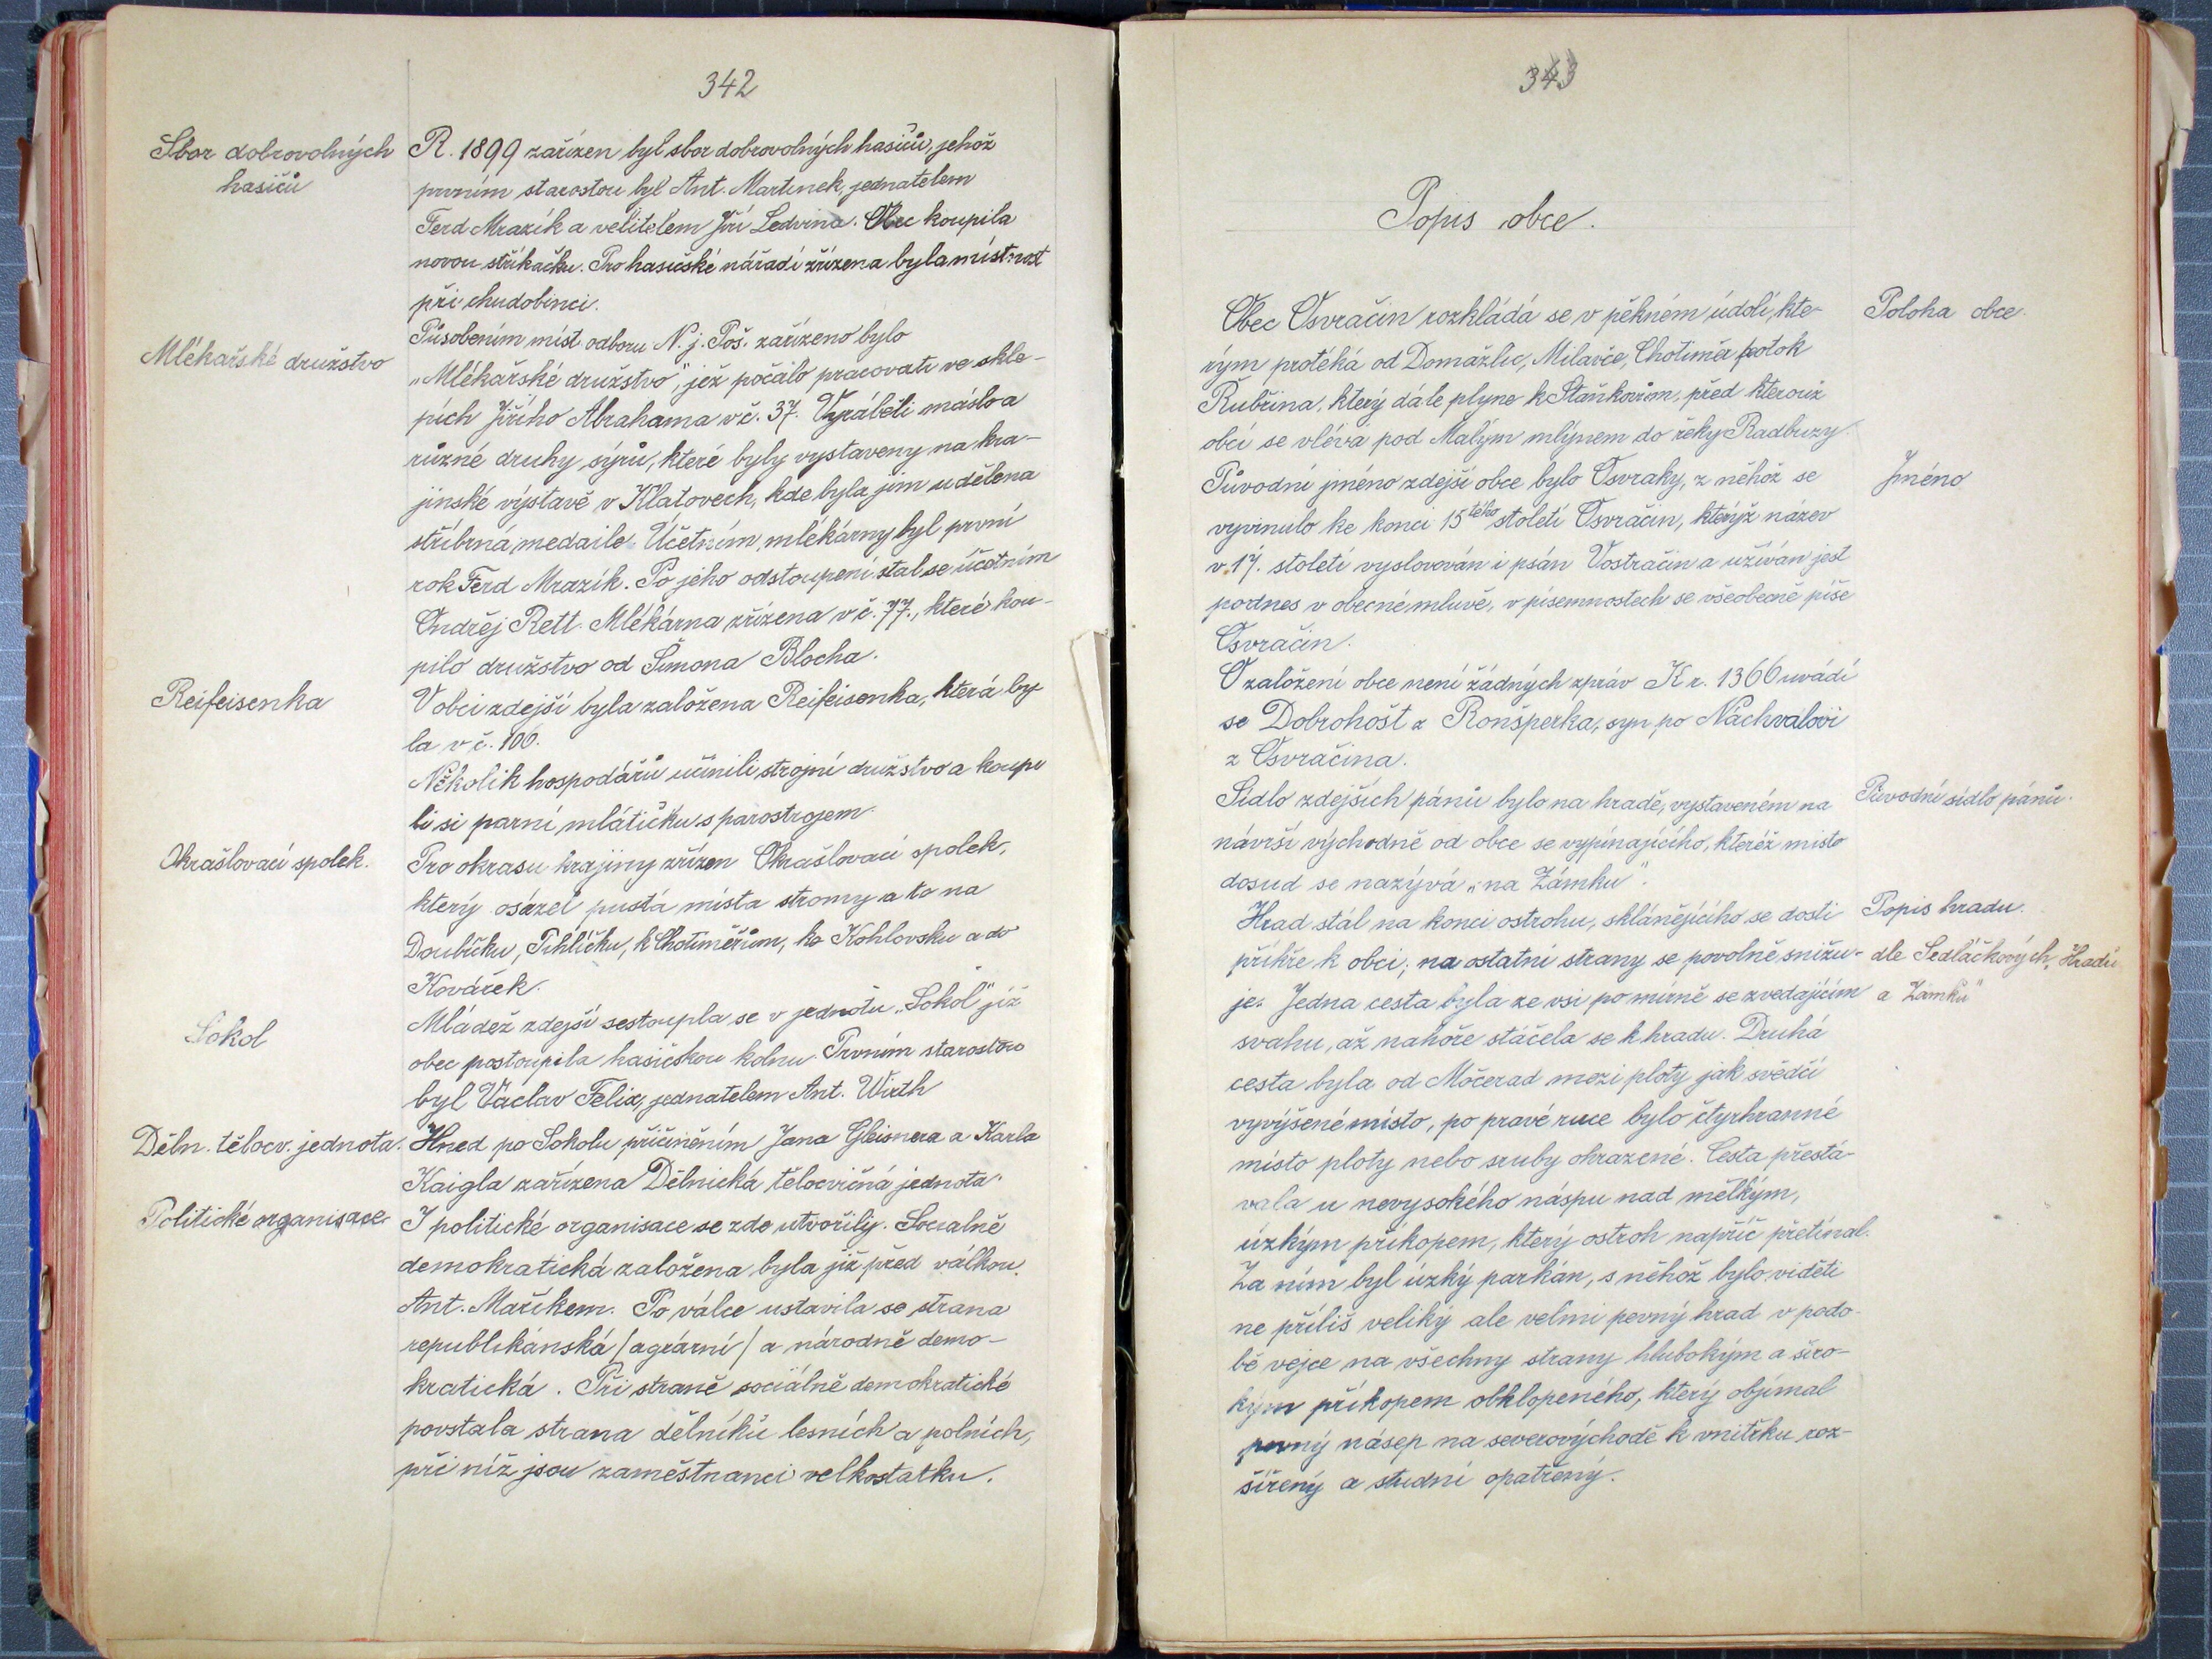 342
Sbor dobrovolných
hasičů
R. 1899 zařízen byl sbor dobrovolných hasičů, jehož
prvním starostou byl Ant. Martinek, jednatelem
Ferd Mrazík a velitelem Jiří Ledvina. Obec koupila
novou stříkačku. Pro hasičské nářadí zřízena byla místnost
při chudobinci.
Působením míst. odboru N. j. Poš. zařízeno bylo
Mlékařské družstvo
„Mlékařské družstvo", jež počalo pracovati ve skle-
pích Jiřího Abrahama v č. 37. Vyráběli máslo a
různé druhy sýrů, které byly vystaveny na kra-
jinské výstavě v Klatovech, kde byla jim udělena
stříbrná medaile. Účetním mlékárny byl první
rok Ferd Mrazík. Po jeho odstoupení stal se účetním
Ondřej Rett. Mlékárna zřízena v č. 77., které kou-
pilo družstvo od Šimona Blocha.
Reifeisenka
V obci zdejší byla založena Reifeisenka, která by-
la v č. 106.
Několik hospodářů učinili strojní družstvo a koupi
li si parní mlátičku s parostrojem.
Okrašlovací spolek.
Pro okrasu krajiny zřízen Okrašlovací spolek,
který osázel pustá místa stromy a to na
Doubíčku, Pihlíčku, k Chotiměřům, ke Kohlovsku a do
Kovářek.
Sokol
Mládež zdejší sestoupla se v jednotu „Sokol" již
obec postoupila hasičskou kolnu. Prvním starostou
byl Václav Felix, jednatelem Ant. Wirth
Děln. tělocv. jednota.
Hned po Sokolu přičiněním Jana Gleisnera a Karla
Kaigla zařízena Dělnická tělocvičná jednota.
Politické organisace
I politické organisace se zde utvořily. Socialně
demokratická založena byla již před válkou
Ant. Maříkem. Po válce ustavila se strana
republikánská /agrární/ a národně demo-
kratická. Při straně sociálně demokratické
povstala strana dělníků lesních a polních,
při níž jsou zaměstnanci velkostatku.
343
Popis obce.
Obec Osvračín rozkládá se v pěkném údolí, kte-
Poloha obce.
rým protéká od Domažlic, Milavče, Chotiměř potok
Rubřina, který dále plyne k Staňkovům, před kterouž
obcí se vlévá pod Malým mlýnem do řeky Radbuzy.
Původní jméno zdejší obce bylo Osvraky, z něhož se
Jméno
vyvinulo ke konci 15tého století Osvračín, kterýž název
v 17. století vyslovován i psán Vostračín a užíván jest
podnes v obecné mluvě, v písemnostech se všeobecně píše
Osvračín.
O založení obce není žádných zpráv K r. 1366 uvádí
se Dobrohošt z Ronšperka, syn po Náchvalovi
z Osvračína.
Sídlo zdejších pánů bylo na hradě, vystaveném na
Původní sídlo pánů.
návrší východně od obce se vypínajícího, kteréž místo
dosud se nazývá „na Zámku".
Hrad stál na konci ostrohu, sklánějícího se dosti
Popis hradu.
příkře k obci; na ostatní strany se povolně snižu-
dle Sedláčkových „Hradů
je. Jedna cesta byla ze vsi po mírně se zvedajícím
a Zámků"
svahu, až nahoře stáčela se k hradu. Druhá
cesta byla od Močerad mezi ploty jak svědčí
vyvýšené místo, po pravé ruce bylo čtyrhranné
místo ploty nebo sruby ohrazené. Cesta přestá-
vala u nevysokého náspu nad mělkým,
úzkým příkopem, který ostroh napříč přetínal.
Za ním byl úzký parkán, s něhož bylo viděti
ne příliš veliký ale velmi pevný hrad v podo-
bě vejce na všechny strany hlubokým a širo-
kým příkopem obklopeného, který objímal
pevný násep na severovýchodě k vnitřku roz-
šířený a studní opatřený.